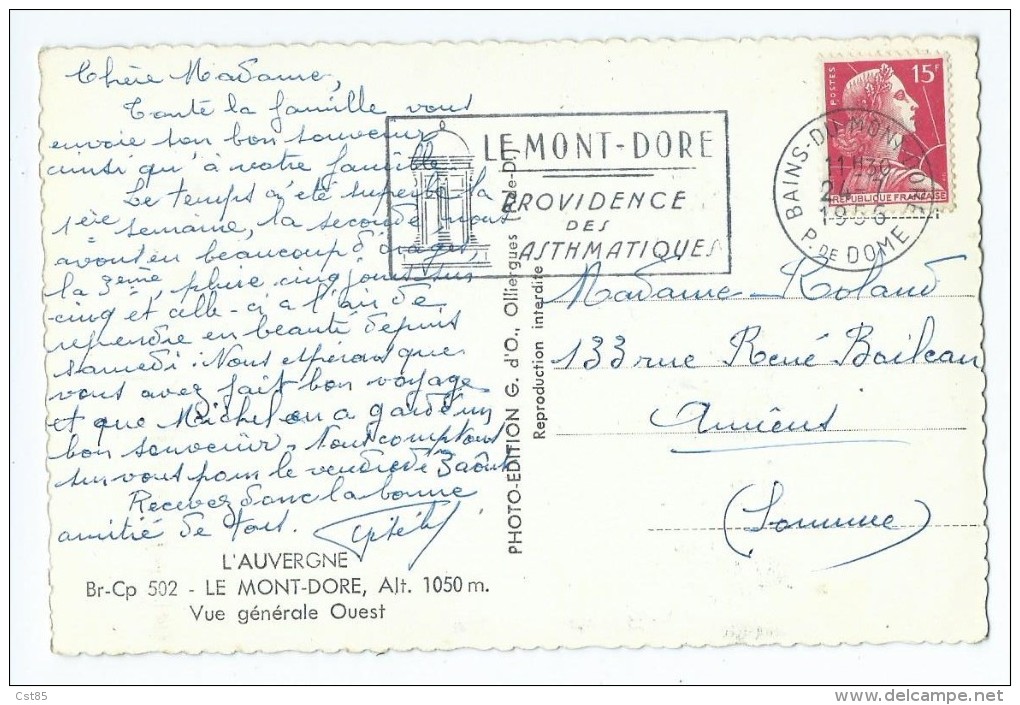 Chère Madame,
Toute la famille vous
envoie son bon souvenir
ainsi qu'à votre famille.
Le temps a été superbe la
1ère semaine, la seconde nous
avons eu beaucoup d'orages,
la 3ème, pluie cinq jours sur
cinq et celle-ci a l'air de
reprendre en beauté depuis
samedi. Nous espérons que
vous avez fait bon voyage
et que Michel en a gardé un
bon souvenir. Nous comptons
sur vous pour le vendredi 3 août
Recevez donc la bonne
amitié de tous.
L'AUVERGNE
Br-Cp 502 - LE MONT-DORE, Alt. 1050 m.
Vue générale Ouest
PHOTO-EDITION G. d'O., Olliergues (P.-de-D.)
Reproduction interdite
LE MONT-DORE
PROVIDENCE
DES
ASTHMATIQUES
POSTES
15F
REPUBLIQUE FRANÇAISE
BAINS-DU-MONT-DORE
11 H30
1956
P. DE DOME
Madame Roland
133 rue René Boileau
Amiens
(Somme)
Cst85
http://www.delcampe.net